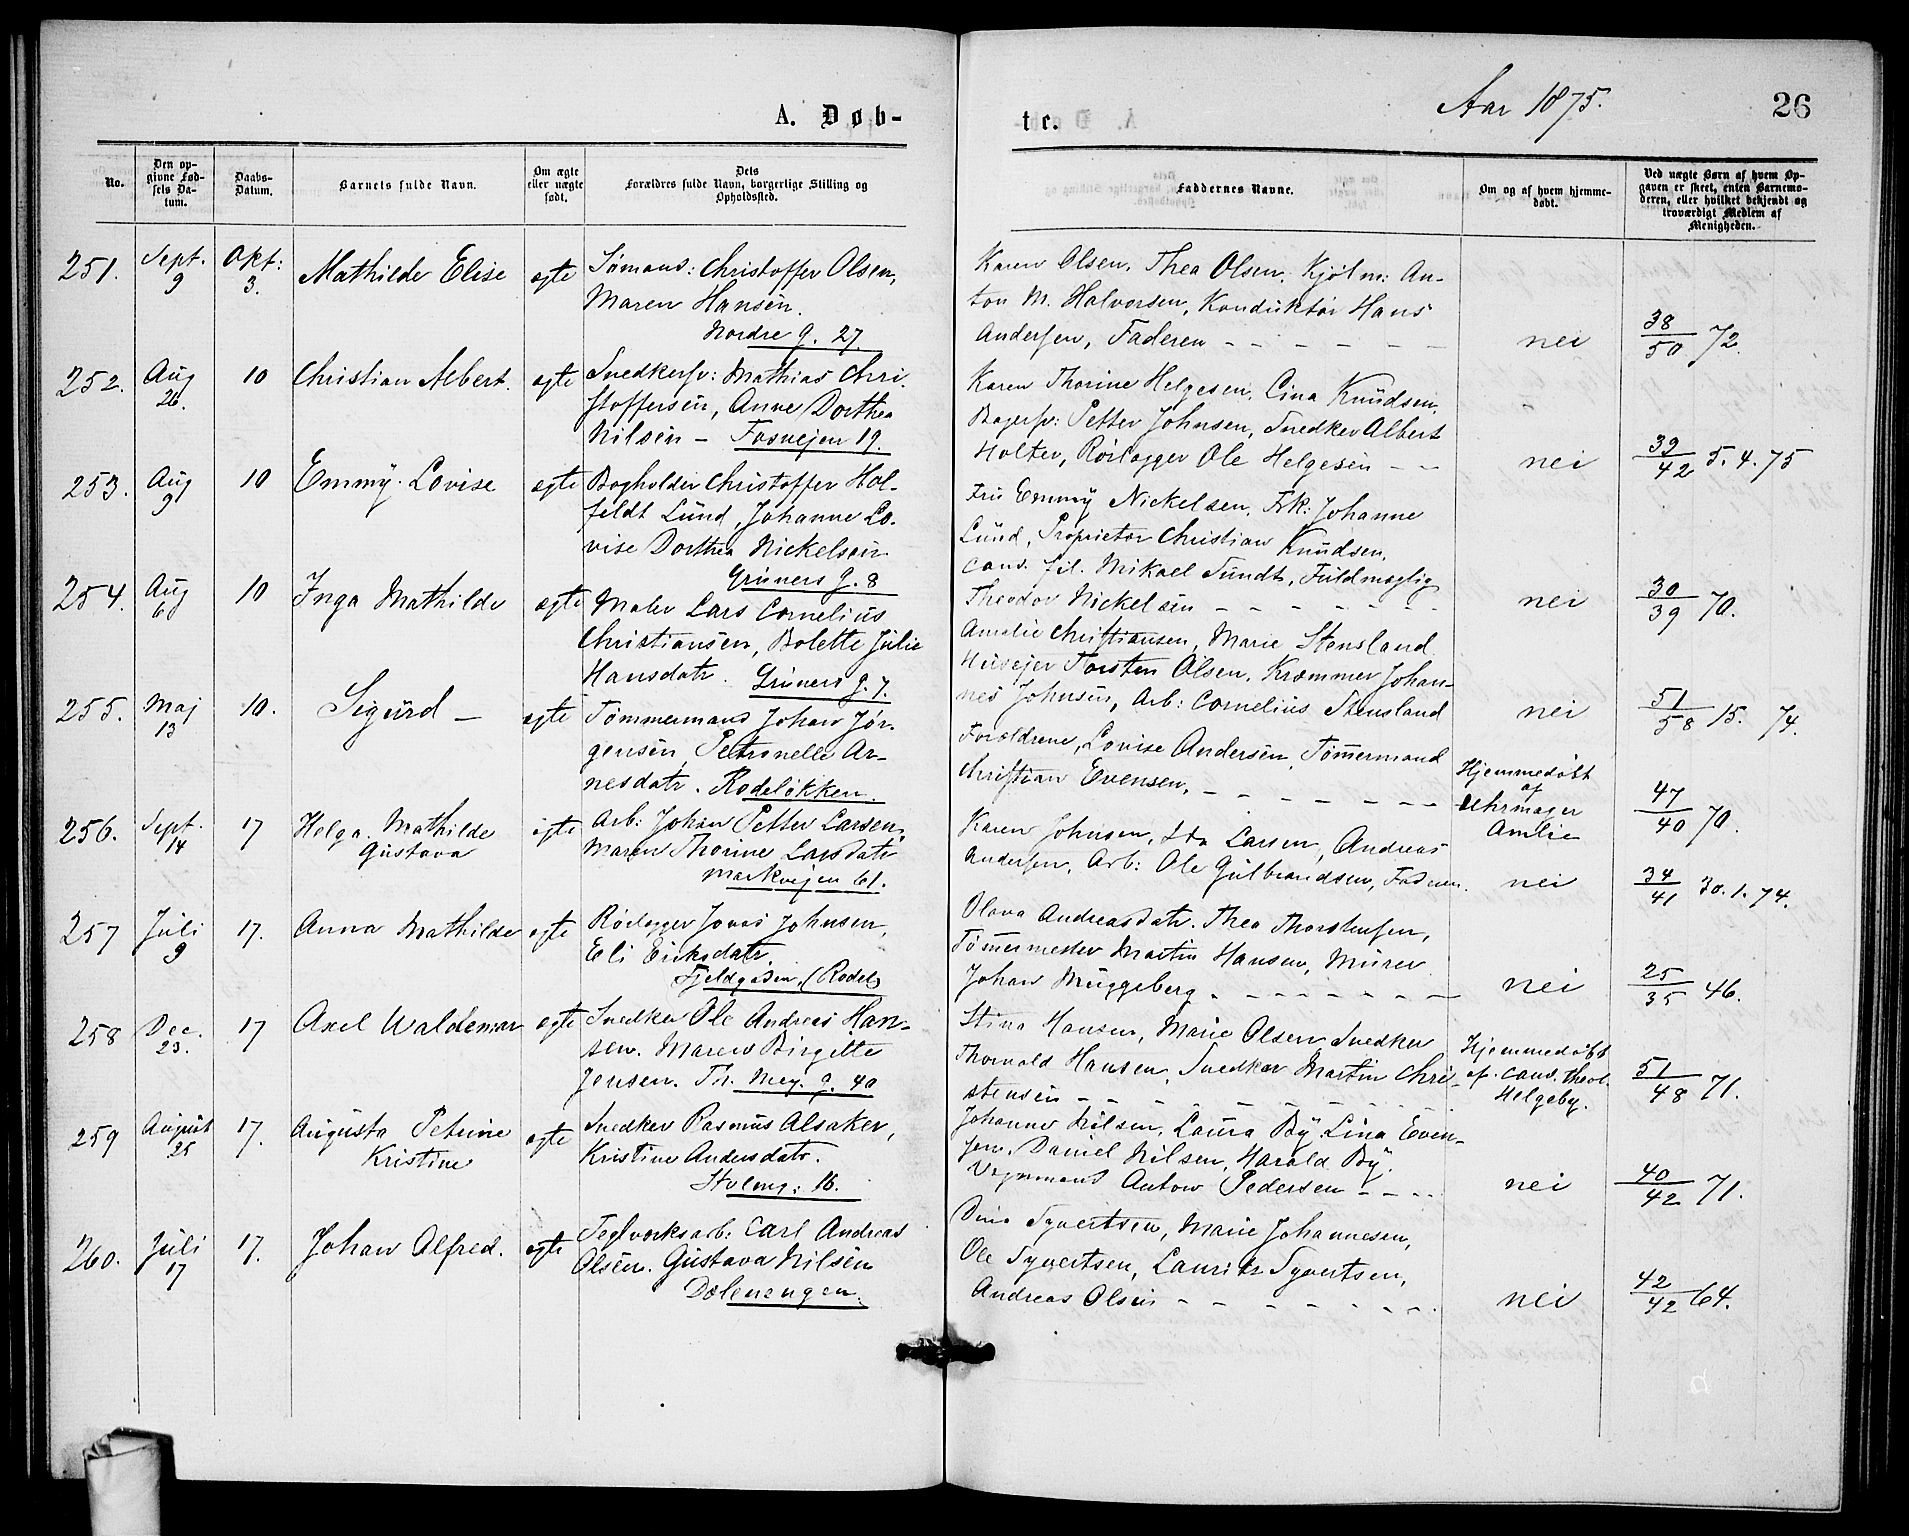 A. Døb-
No.
Den op-
givne Fød-
sels Da-
tum.
Daabs-
Datum.
Barnets fulde Navn.
Om ægte
eller uægte
født.
Dets
Forældres fulde Navn, borgerlige Stilling og
Opholdssted.
251.
Sept.
9
Okt:
3.
Mathilde Elise
ægte
Sømand: Christoffer Olsen,
Maren Hansen.
Nordre g. 27.
252.
Aug
26.
10
Christian Albert.
ægte
Snedkersv: Mathias Chri-
stoffersen, Anne Dorthea
Nilsen – Fosvejen 19.
253.
Aug
9
10
Emmy Lovise
ægte
Bogholder Christoffer Hol-
feldt Lund, Johanne Lo-
vise Dorthea Nickelsen
Gruners g. 8
254.
Aug
6
10
Inga Mathilde
ægte
Maler Lars Cornelius
Christiansen, Bolette Julie
Hansdatr. Gruners g. 7.
255.
Maj
13
10.
Sigurd –
ægte
Tømmermand Johan Jør-
gensen, Petronelle Ar-
nesdatr. Rodeløkken.
256.
Sept.
14
17
Helga Mathilde
Gustava
ægte
Arb: Johan Petter Larsen,
Maren Thorine Larsdatr
Markvejen 61.
257
Juli
9
17.
Anna Mathilde
ægte
Rørlægger Jonas Johnsen,
Eli Eriksdatr.
Fjeldgaden, (Rodel)
258
Dec.
23.
17
Axel Waldemar
ægte
Snedker Ole Andreas Han-
sen. Maren Birgitte
Jensen. Th. Mey. g. 40
259
August
25
17.
Augusta Petrine
Kristine
ægte
Snedker Rasmus Alsaker,
Kristine Andersdatr.
Stolmg: 16.
260.
Juli
17
17.
Johan Alfred.
ægte
Teglverksarb: Carl Andreas
Olsen. Gustava Nilsen
Dælenengen.
te.
Aar 1875.
26
Faddernes Navne.
Om og af hvem hjemme-
døbt.
Ved uægte Børn af hvem Op-
gaven er skeet, enten Barnemo-
deren, eller hvilket bekjendt og
troværdigt Medlem af
Menigheden.
Karen Olsen, Thea Olsen, Kjølm: An-
ton M. Halvorsen, Konduktør Hans
Andersen, Faderen – – – – – –
nei
38/50 72.
Karen Thorine Helgesen, Lina Knudsen,
Bagersv: Petter Johnsen, Snedker Albert
Holter, Rørlægger Ole Helgesen – –
nei
39/42 5.4.75
Fru Emmy Nickelsen, Frk: Johanne
Lund, Proprietær Christian Knudsen,
cand. fil. Mikael Sundt, Fuldmægtig
Theodor Nickelsen – – – – – –
nei
30/39 70.
Amalie Christiansen, Marie Stensland
Husejer Torsten Olsen, Kræmmer Johan-
nes Johnsen, Arb: Cornelius Stensland
nei
51/58 15. 74.
Forældrene, Lovise Andersen, Tømmermand
Christian Evensen, – – – – – –
Hjemmedøbt
af
Uhrmager
Amlie
47/40 70.
Karen Johnsen, Ida Larsen, Andreas
Andersen, Arb: Ole Gulbrandsen, Faderen.
nei
34/41 30.1.74.
Olava Andreasdatr. Thea Thorstensen,
Tømmermester Martin Hansen, Murer
Johan Muggeberg. – – – – – –
nei
25/35 46.
Stina Hansen, Marie Olsen, Snedker
Thorvald Hansen, Snedker Martin Chri-
stensen – – – – – – –
Hjemmedøbt
af. cand. theol.
Helgeby.
51/48 71.
Johanne Nilsen, Laura By, Lina Even-
sen, Daniel Nilsen, Harald By.
Vognmand Anton Pedersen – – –
nei
40/42 71.
Dina Syvertsen, Marie Johannesen,
Ole Syvertsen, Lauritz Syvertsen,
Andreas Olsen – – – – – – –
nei
42/42 64.